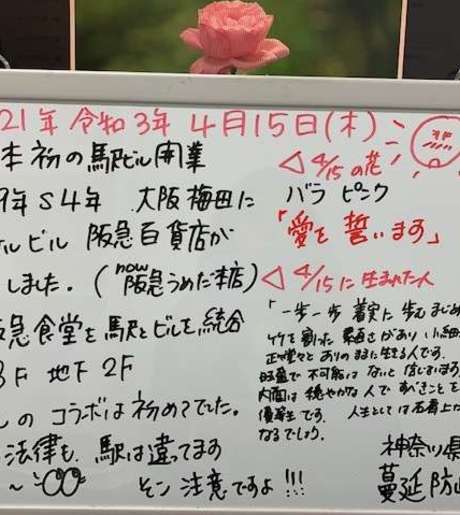 21年 令和3年 4月15日(木)
本初の駅ビル開業
9年 S4年 大阪梅田に
ルビル 阪急百貨店が
しました。(now 阪急うめだ本店)
急食堂を駅とビルを統合
F 地下2F
しの コラボは初めてでした。
法律も、駅は違ってます
~ そこ 注意ですよ!!!
◁ 4/15の花
バラ ピンク
「愛を誓います」
◁ 4/15に生まれた人
「一歩一歩 着実に 歩む まじめ
竹を割った 素直さがあり 小細
正々堂々と ありのままに生きる人です。
で 不可能は ないと 信じます
内面は 穏やかな人で すべきことを
優等生です。 人生としては 右肩上が
なるでしょう。
神奈川県
蔓延防